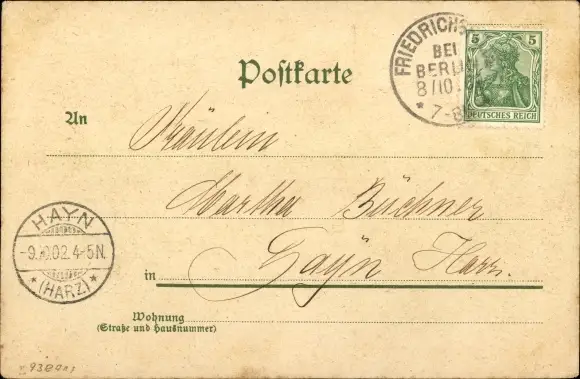 Postkarte
FRIEDRICHS
BEI
BERLIN
8/10
* 7-8
5 5
DEUTSCHES REICH
An
Fräulein
Martha Büchner
in Hayn Harz.
HAYN
-9. 10.02. 4-5N.
* (HARZ) *
Wohnung
(Straße und Hausnummer)